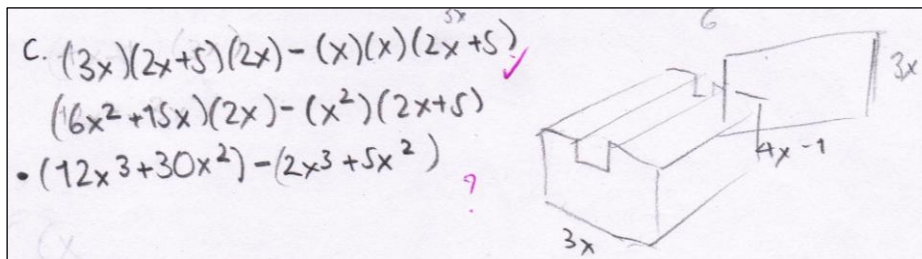 C. (3x)(2x+5)(2x) - (x)(x)(2x+5)
(6x² + 15x)(2x) - (x²)(2x+5)
• (12x³ + 30x²) - (2x³ + 5x²)
?
6
3x
4x - 1
3x